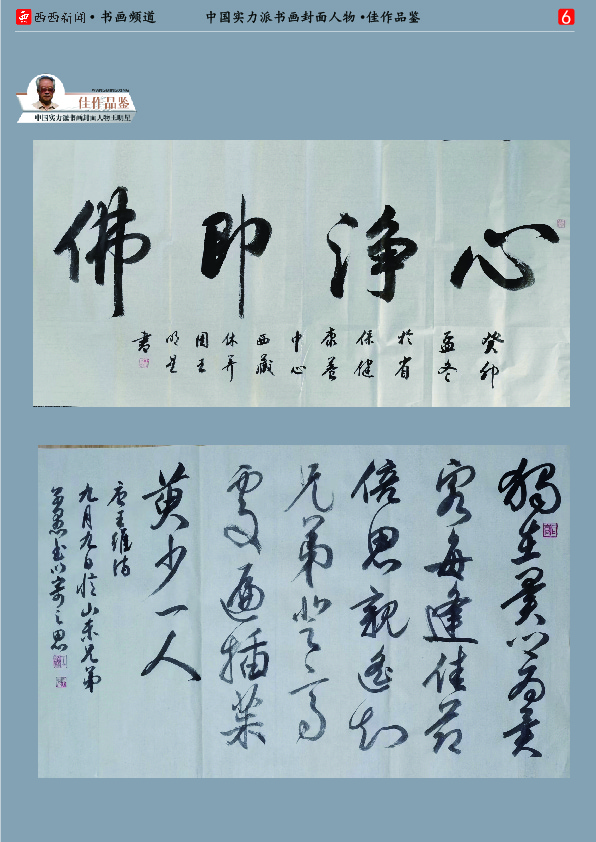 西西新闻·书画频道
中国实力派书画封面人物·佳作品鉴
6
佳作品鉴
中国实力派书画封面人物王明星
心淨即佛
癸卯
孟冬
於省
保健
康養
中心
西藏
休养
园王
明星
書
獨在異鄉為異
客每逢佳節
倍思親遙知
兄弟登高
處遍插茱
萸少一人
唐王維诗
九月九日忆山东兄弟
书以寄之思